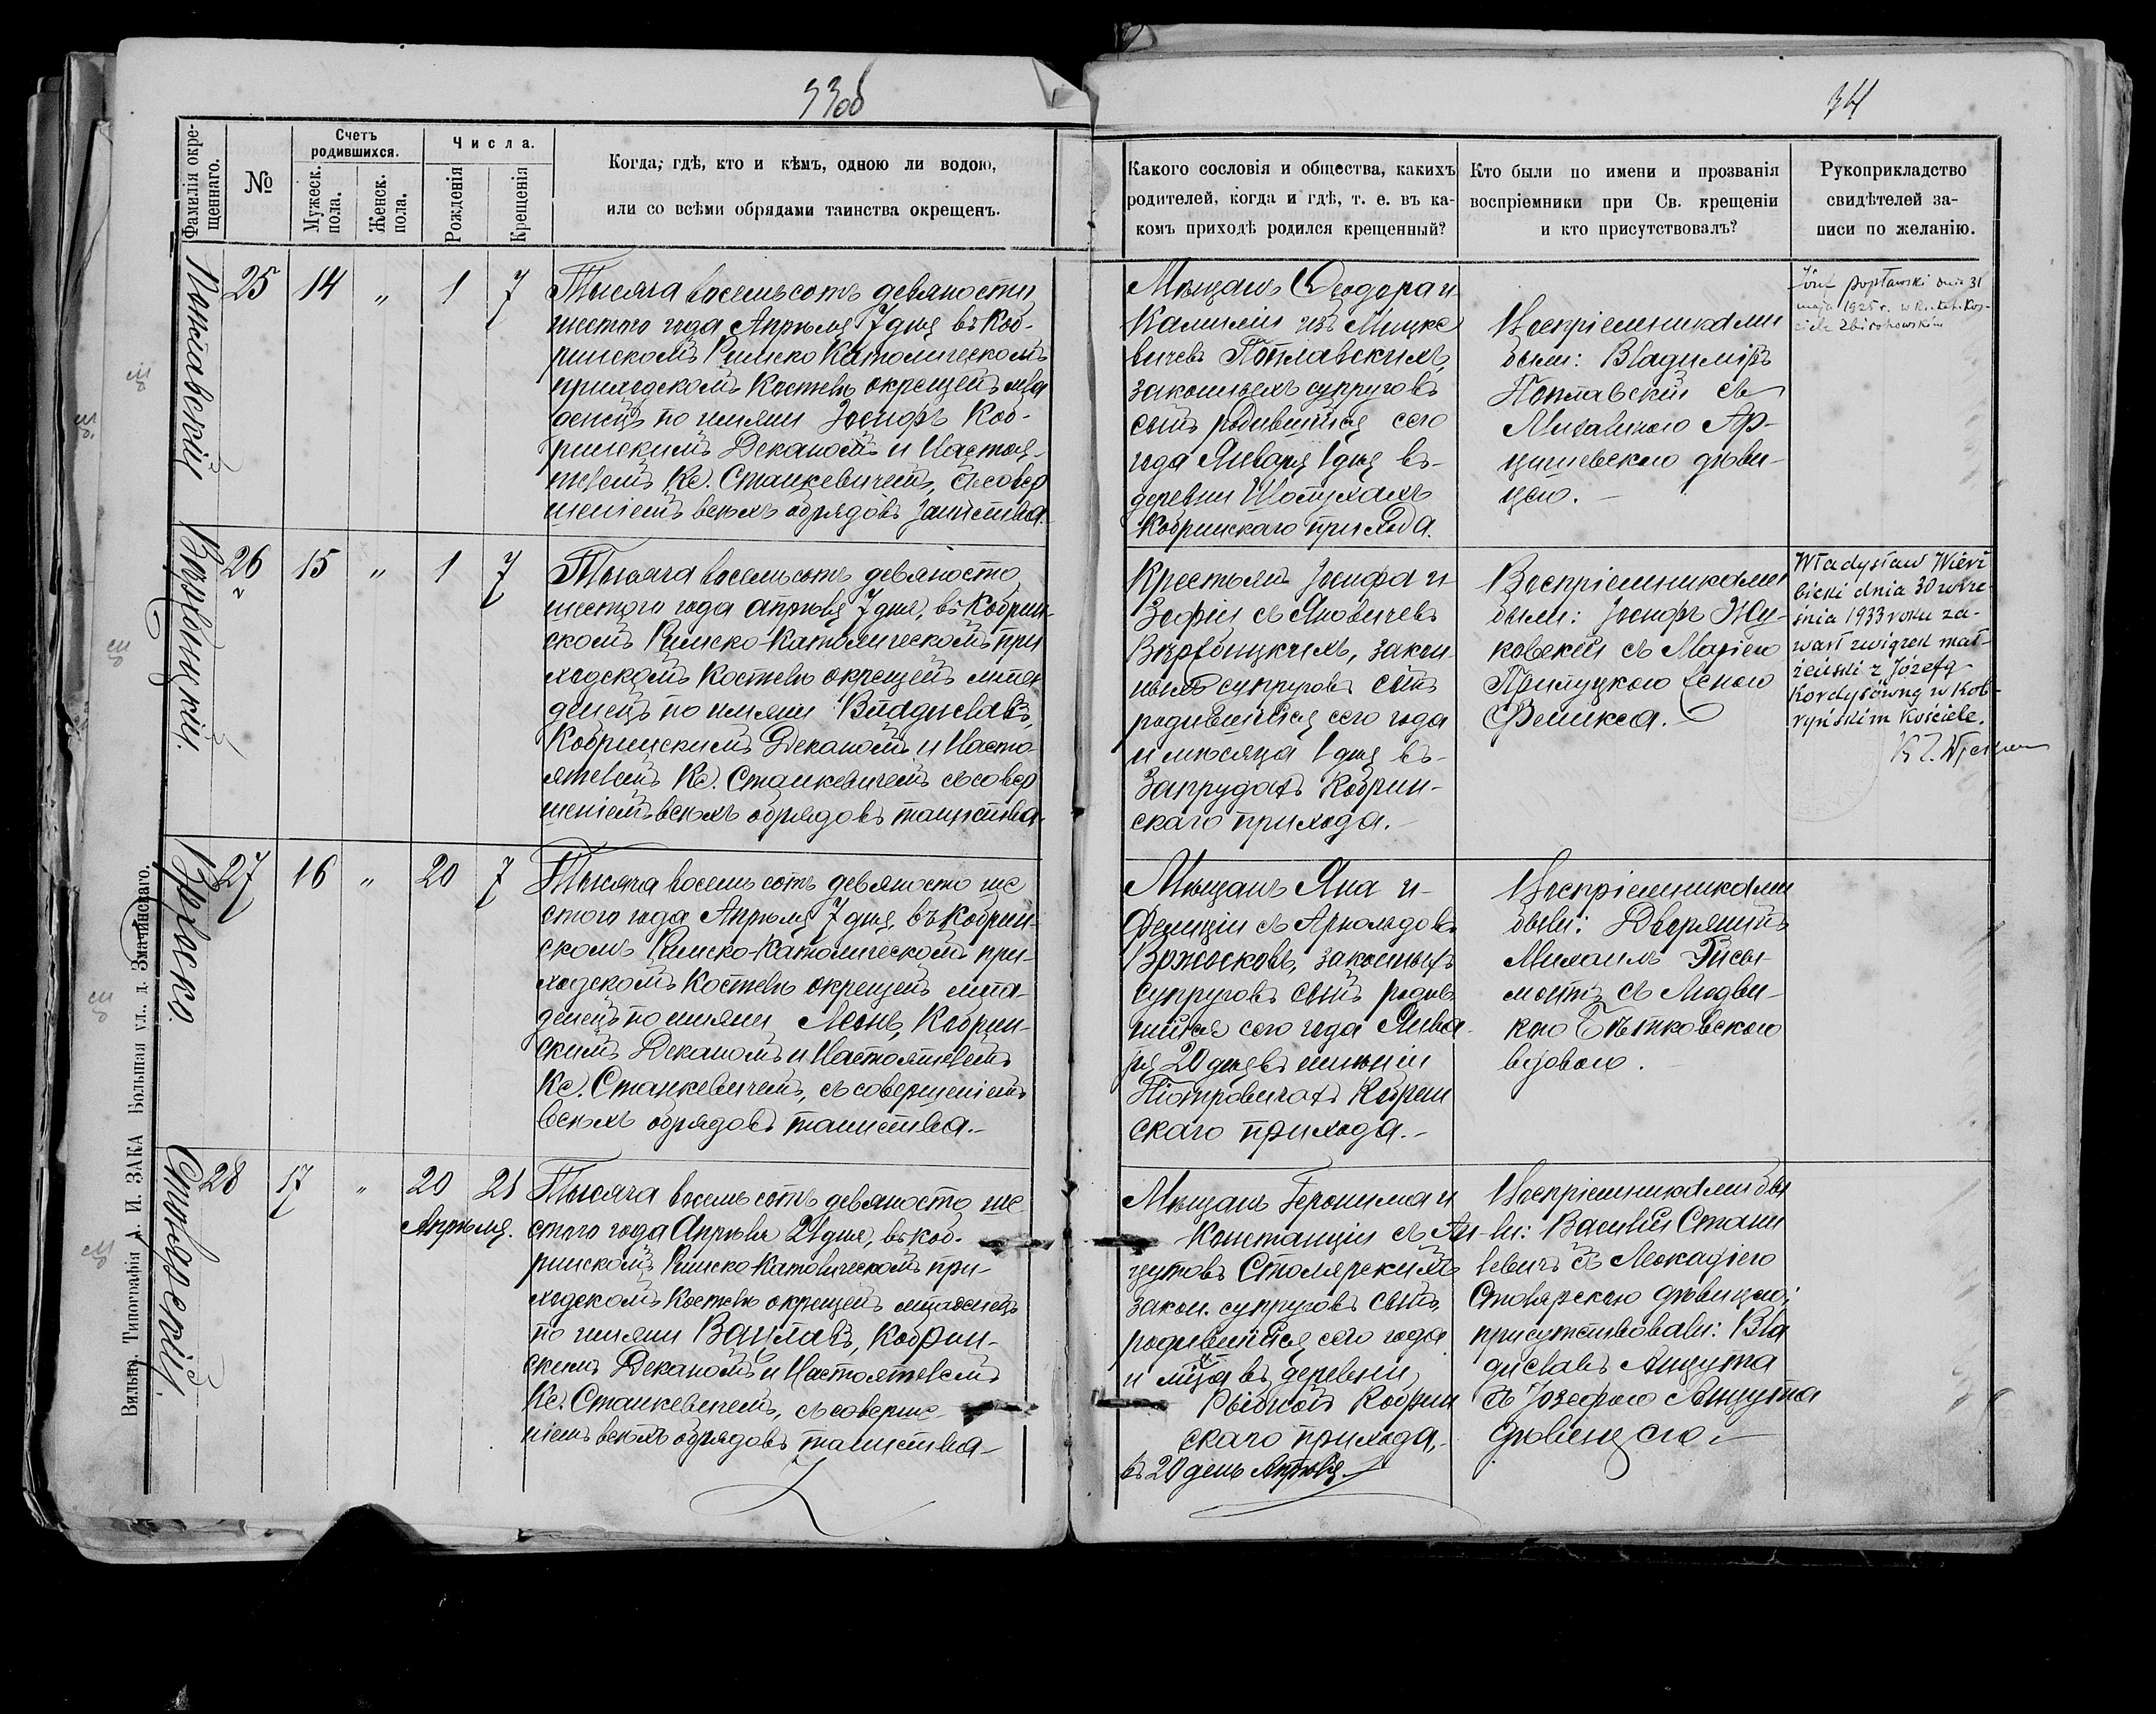 33об
34
Фамилія окре-
щеннаго.
№
Счетъ
родившихся.
Мужеск.
пола.
Женск.
пола.
Числа.
Рожденія
Крещенія
Когда, гдѣ, кто и кѣмъ, одною ли водою,
или со всѣми обрядами таинства окрещенъ.
Какого сословія и общества, какихъ
родителей, когда и гдѣ, т. е. въ ка-
комъ приходѣ родился крещенный?
Кто были по имени и прозванія
воспріемники при Св. крещеніи
и кто присутствовалъ?
Рукоприкладство
свидѣтелей за-
писи по желанію.
Поплавскій
25 14 „ 1 7
Тысяча восемьсотъ девяносты
шестого года Апрѣля 7 дня въ Коб-
ринскомъ Римско Католическомъ
приходскомъ Костелѣ окрещенъ мла
денецъ по имяни Іосифъ Коб-
ринскимъ Деканомъ и Настоя-
телемъ Кс. Станкевичемъ, съ совер
шеніемъ всѣхъ обрядовъ таинства.
Мѣщанъ Ѳеодора и
Камиліи изъ Мицке
вичевъ Поплавскихъ,
законныхъ супруговъ
сынъ родившійся сего
года Января 1 дня въ
деревни Шопухахъ
Кобринскаго прихода.
Воспріемниками
были: Владиміръ
Поплавскій съ
Михалиною Ар-
цишевскою дѣви-
цею.
Józef Popławski dnia 31
maja 1925 r. w Rz. Kat. Koś-
ciele Zbirohowskim
Вержбицкій.
26 15 „ 1 7
Тысяча восемьсотъ девяносто
шестого года апрѣля 7 дня, въ Кобрин-
скомъ Римско-Католическомъ при
ходскомъ Костелѣ окрещенъ мла
денецъ по имяни Владиславъ,
Кобринскимъ Деканомъ и Насто
ятелемъ Кс. Станкевичемъ съ совер
шеніемъ всѣхъ обрядовъ таинства.
Крестьянъ Іосифа и
Зофіи съ Яновичевъ
Вержбицкихъ, закон-
ныхъ супруговъ сынъ
родившійся сего года
и мѣсяца 1 дня въ
Запрудахъ Кобрин-
скаго прихода.
Воспріемниками
были: Іосифъ Жу-
ковскій съ Маріею
Прилуцкою женою
Феликса.
Władysław Wierz
bicki dnia 30 wrze-
śnia 1933 roku za-
warł związek mał-
żeński z Józefą
Kordysówną w Kob-
ryńskim kościele.
Вржоско.
27 16 „ 20 7
Тысяча восемь сотъ девяносто ше
стого года Апрѣля 7 дня, въ Кобрин-
скомъ Римско-Католическомъ при-
ходскомъ Костелѣ окрещенъ мла-
денецъ по имяни Леонъ, Кобрин-
скимъ Деканомъ и Настоятелемъ
Кс. Станкевичемъ, съ совершеніемъ
всѣхъ обрядовъ таинства.
Мѣщанъ Яна и
Фелиціи съ Арнольдовъ
Вржосковъ, законныхъ
супруговъ сынъ родив
шійся сего года Янва
ря 20 дня въ имѣніи
Піотровичахъ Кобрин
скаго прихода.
Воспріемниками
были: Дворянинъ
Михаилъ
съ Людви-
кою Бѣтковскою
вдовою.
Столярскій.
28 17 „ 20 21
Апрѣля.
Тысяча восемь сотъ девяносто ше
стого года Апрѣля 21 дня, въ Коб-
ринскомъ Римско-Католическомъ при-
ходскомъ Костелѣ окрещенъ младенецъ
по имяни Вацлавъ, Кобрин-
скимъ Деканомъ и Настоятелемъ
Кс. Станкевичемъ, съ соверше-
ніемъ всѣхъ обрядовъ таинства
Мѣщанъ Геронима и
Констанціи съ Ан-
цутовъ Столярскихъ
закон. супруговъ сынъ,
родившійся сего года
и мѣся въ деревни
Рыбной Кобрин
скаго прихода,
въ 20 день Апрѣля.
Воспріемниками бы
ли: Василій Стани
левичъ съ Леокадіею
Столярскою дѣвицею;
присутствовали: Вла
диславъ Анцута
съ Іозефою Анцута
дѣвицею.
Вильна. Типографія А. И. ЗАКА Большая ул., д. Змачинскаго.